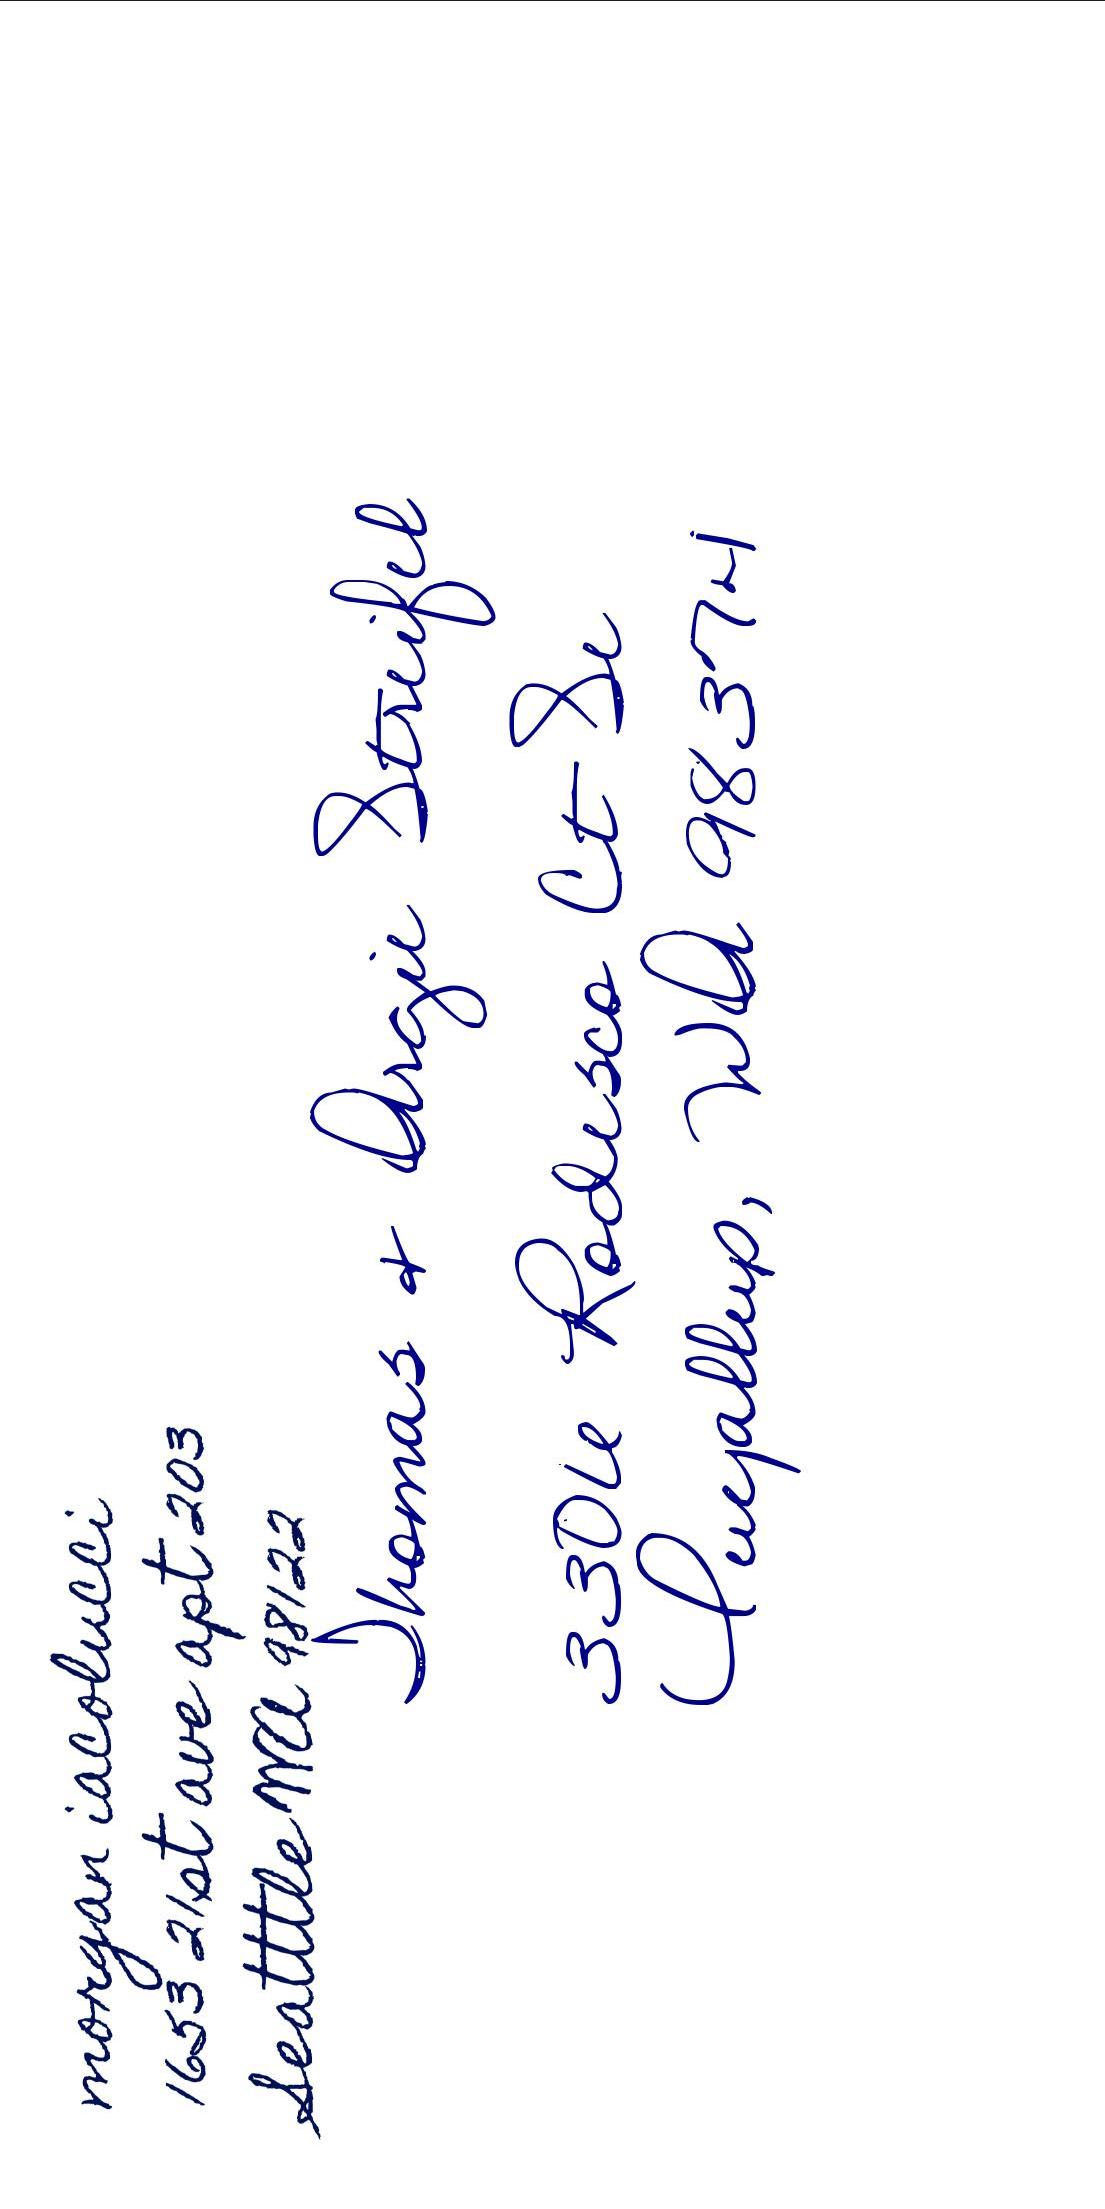 morgan iacolucci
1653 21st ave apt 203
Seattle WA 98122
Thomas + Angie Streifel
3306 Rodesco Ct Se
Puyallup, WA 98374